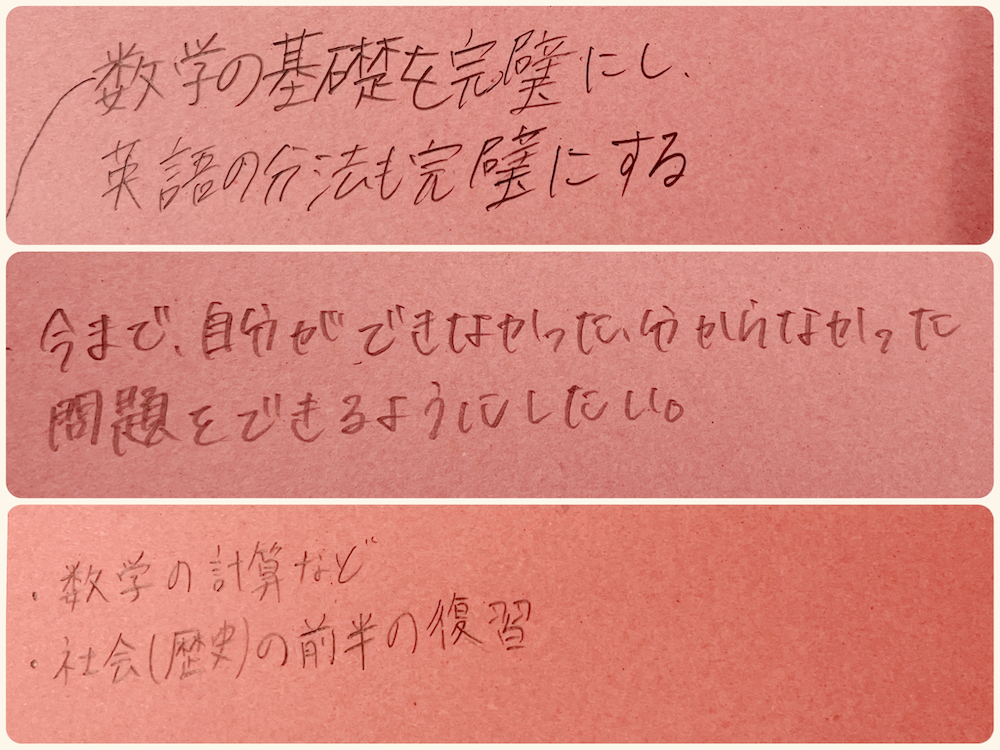 数学の基礎を完璧にし、
英語の分法も完璧にする
今まで、自分ができなかった、分からなかった
問題をできるようにしたい。
・数学の計算など
・社会(歴史)の前半の復習